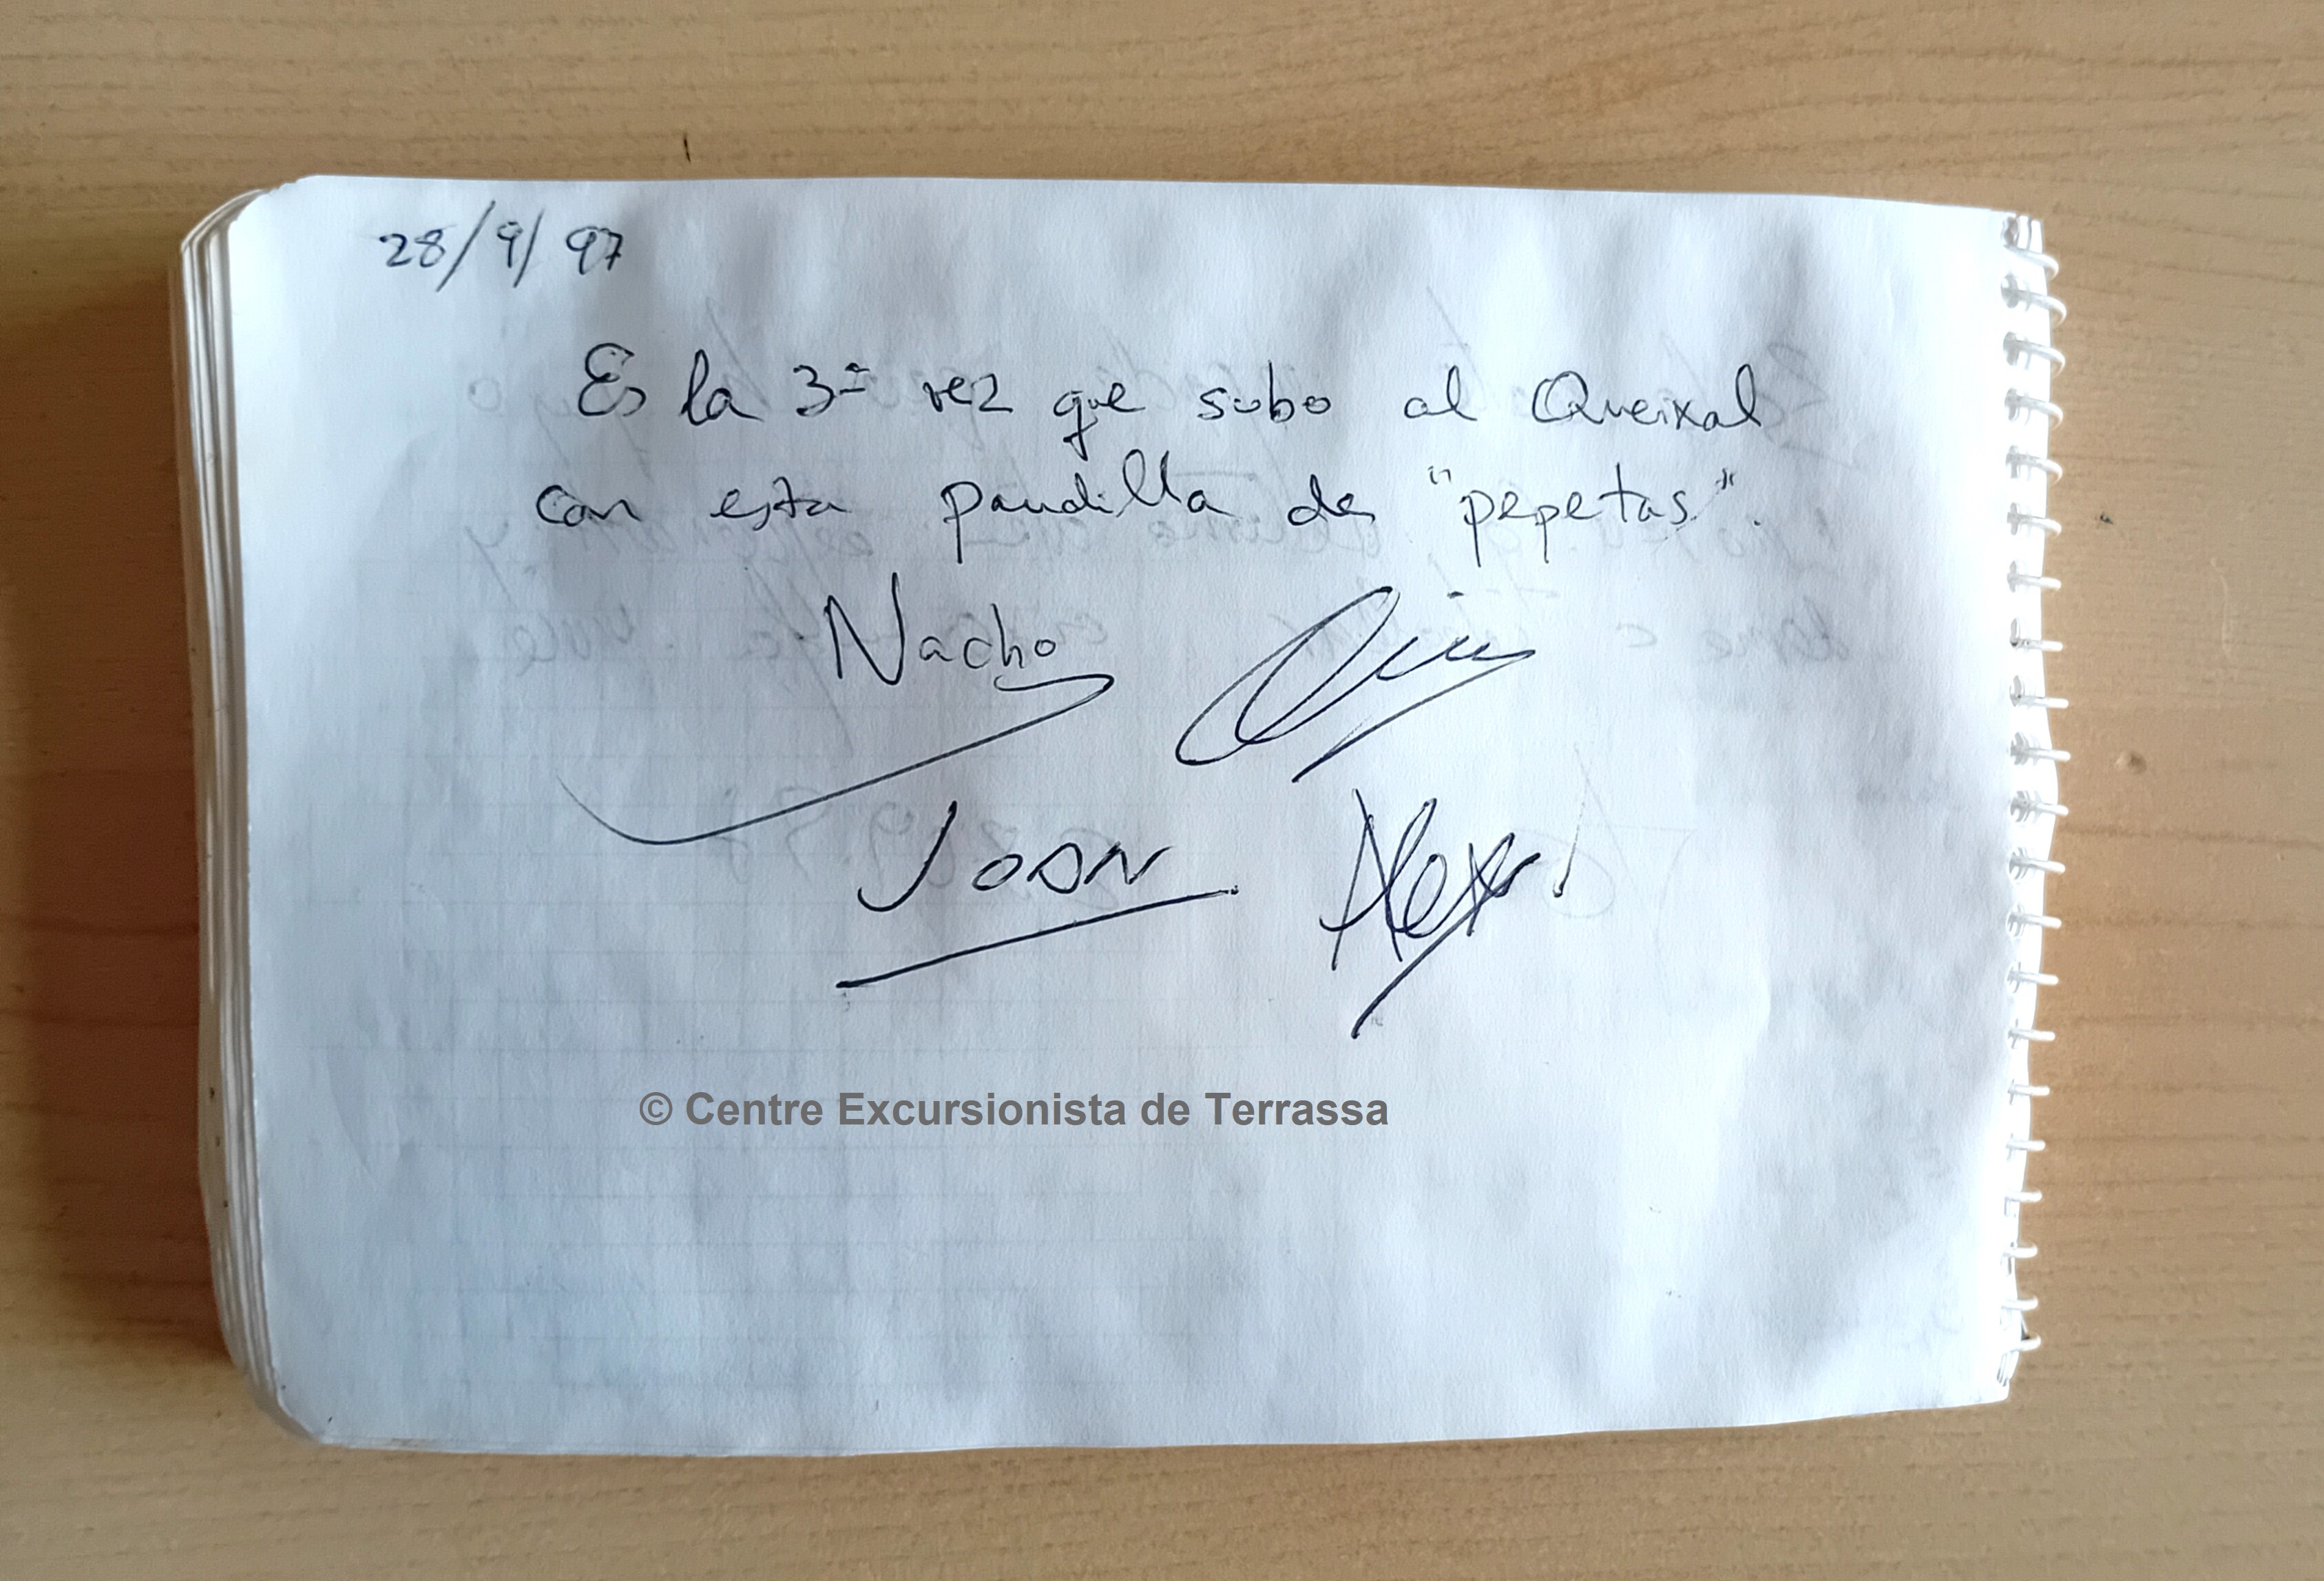 28/9/97
Es la 3ª vez que subo al Queixal
con esta pandilla de "pepetas".
Nacho
JOAN Alex
© Centre Excursionista de Terrassa